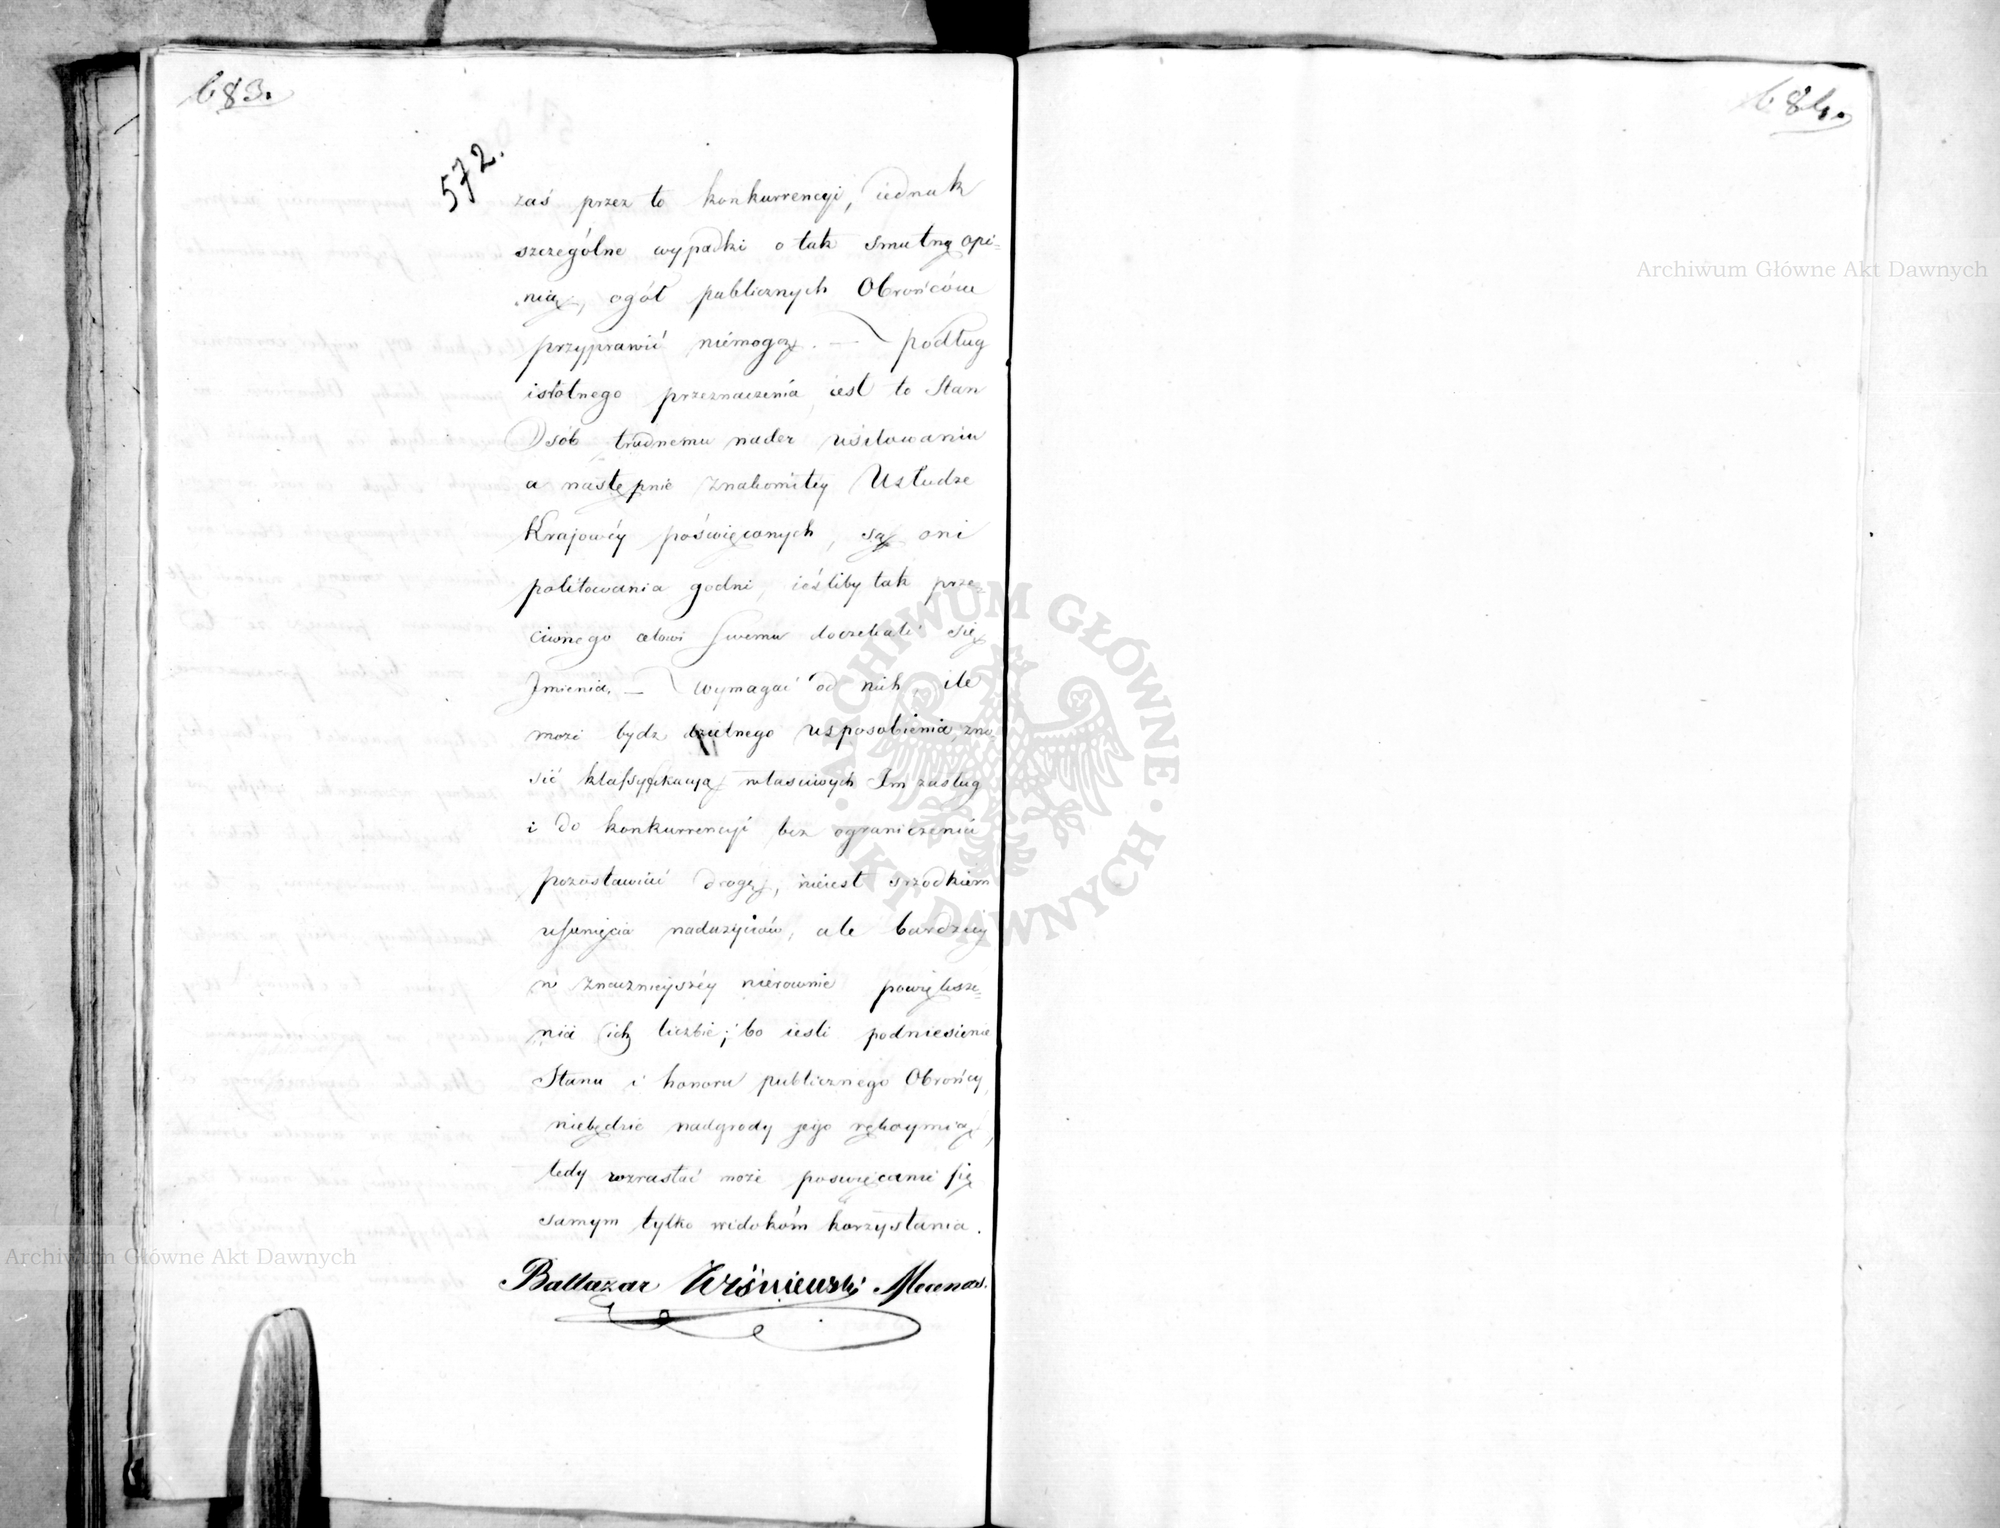 683.
572.
zaś przez to konkurrencyi, iednak
szczególne wypadki o tak smutną opi=
nią, ogół publicznych Obrońców
przyprawić niemogą. — podług
istotnego przeznaczenia, iest to Stan
Osób trudnemu nader usiłowaniu
a następnie znakomitey Usłudze
Krajowéy poświęconych, są oni
politowania godni, ieśliby tak prze=
ciwnego celowi swemu doczekali się
Imienia. — wymagać od nich, ile
może bydz dzielnego usposobienia, zno=
sić klassyfikacyą właściwych Im zasług
i do konkurrencyi bez ograniczenia
pozostawiać drogę, nieiest srzodkiem
usunięcia nadużyciów, ale bardziey
w znaczniejszéy nierównie powiększe=
nia ich liczbie; bo iesli podniesienie
Stanu i honoru publicznego Obrońcy,
niebędzie nadgrody jego rękoymią,
tedy wzrastać może poswięcanie się
samym tylko widokóm korzystania.
Baltazar Wiśniewski Mecenas.
684.
Archiwum Główne Akt Dawnych
ARCHIWUM GŁÓWNE AKT DAWNYCH
Archiwum Główne Akt Dawnych